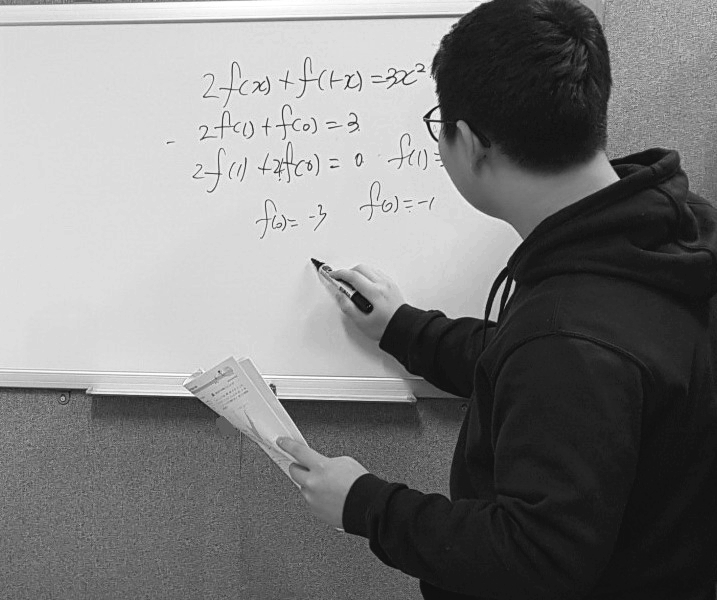 2f(x) + f(1-x) = 3x²
- 2f(1) + f(0) = 3
2f(1) + 4f(0) = 0 . f(1) =
f(0) = -3 f(0) = -1